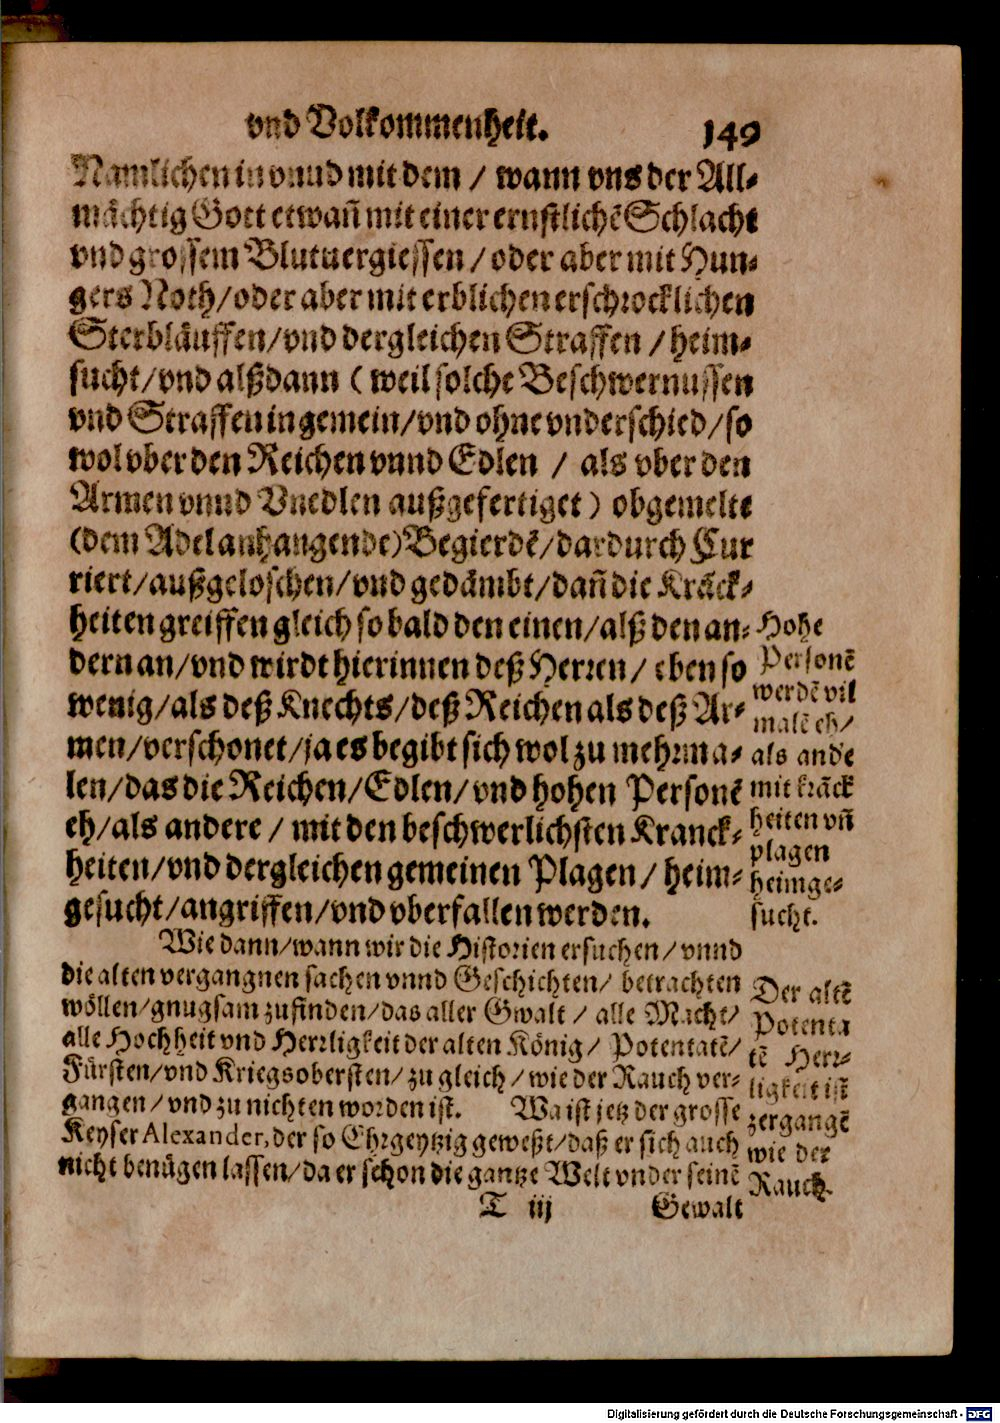 vnd Volkommenheit. 149
Namlichen in vnnd mit dem / wann vns der All-
mächtig Gott etwañ mit einer ernstlichẽ Schlacht
vnd grossem Blutuergiessen / oder aber mit Hun-
gers Noth / oder aber mit erblichen erschrocklichen
Sterbläuffen / vnd dergleichen Straffen / heim-
sucht / vnd alßdann ( weil solche Beschwernussen
vnd Straffen in gemein / vnd ohne vnderschied / so
wol vber den Reichen vnnd Edlen / als vber den
Armen vnnd Vnedlen außgefertiget ) obgemelte
(dem Adel anhangende) Begierdẽ / dardurch Cur
riert / außgeloschen / vnd gedämbt / dañ die Krãck-
heiten greiffen gleich so bald den einen / alß den an-
dern an / vnd wirdt hierinnen deß Herren / eben so
wenig / als deß Knechts / deß Reichen als deß Ar-
men / verschonet / ja es begibt sich wol zu mehrma-
len / das die Reichen / Edlen / vnd hohen Personẽ
eh / als andere / mit den beschwerlichsten Kranck-
heiten / vnd dergleichen gemeinen Plagen / heim-
gesucht / angriffen / vnd vberfallen werden.
Hohe
Personẽ
werdẽ vil
malẽ eh /
als andˈe
mit krãck
heiten vñ
plagen
heimge-
sucht.
Wie dann / wann wir die Historien ersuchen / vnnd
die alten vergangnen sachen vnnd Geschichten / betrachten
wöllen / gnugsam zufinden / das aller Gwalt / alle Macht /
alle Hochheit vnd Herrligkeit der alten König / Potentatẽ /
Fürsten / vnd Kriegsobersten / zu gleich / wie der Rauch ver-
gangen / vnd zu nichten worden ist. Wa ist jetz der grosse
Keyser Alexander, der so Ehrgeytzig geweßt / daß er sich auch
nicht benügen lassen / da er schon die gantze Welt vnder seinẽ
Der altẽ
Potenta
tẽ Herr-
ligkeit ist
zergangẽ
wie der
Rauch.
T iij Gewalt
Digitalisierung gefördert durch die Deutsche Forschungsgemeinschaft - DFG